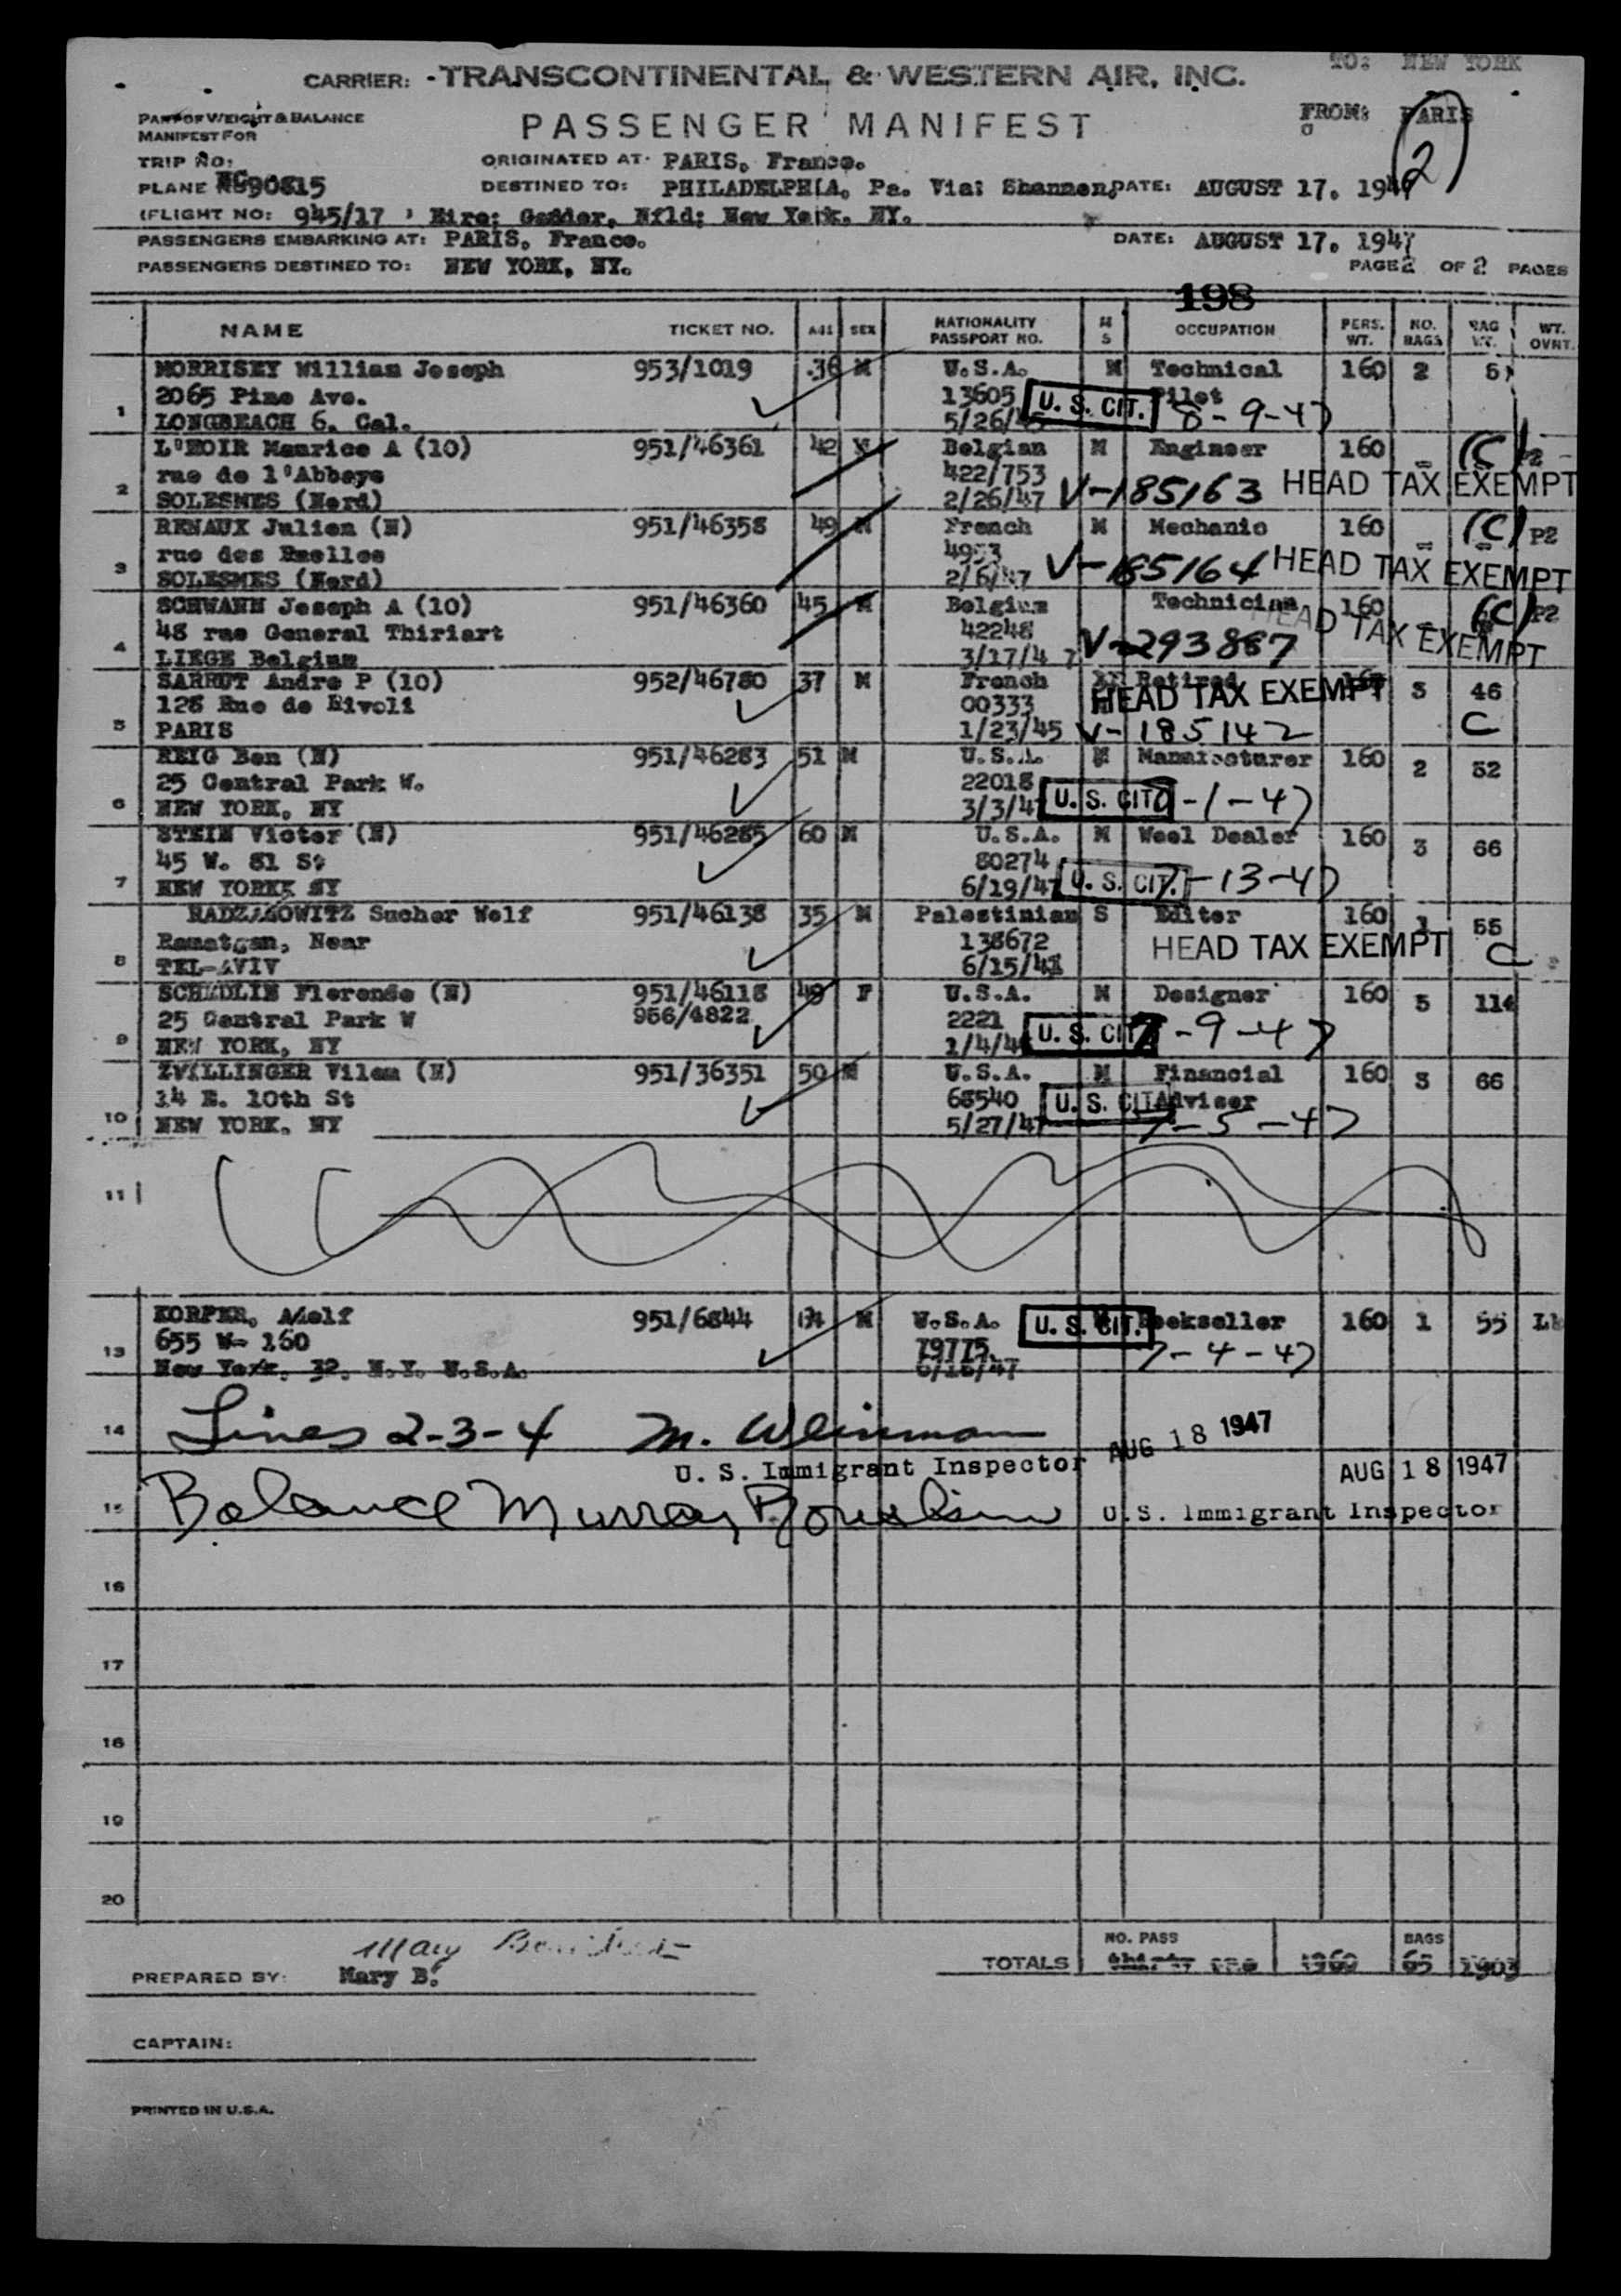 TO: NEW YORK
CARRIER: TRANSCONTINENTAL & WESTERN AIR, INC.
PART OF WEIGHT & BALANCE
MANIFEST FOR
PASSENGER MANIFEST
FROM: PARIS
(2)
TRIP NO:
ORIGINATED AT PARIS, France.
PLANE NC90815
DESTINED TO: PHILADELPHIA, Pa. Via: Shannon, DATE: AUGUST 17, 1947
(FLIGHT NO: 945/17 ) Eire; Gander, Nfld; New York, NY.
PASSENGERS EMBARKING AT: PARIS, France. DATE: AUGUST 17, 1947
PASSENGERS DESTINED TO: NEW YORK, NY. PAGE 2 OF 2 PAGES
198
NAME TICKET NO. AGE SEX NATIONALITY PASSPORT NO. M S OCCUPATION PERS. WT. NO. BAGS BAG WT. WT. OVRT.
MORRISEY William Joseph 953/1019 36 M U.S.A. M Technical 160 2
2065 Pine Ave. 13605 U. S. CIT. Pilot
1 LONGBEACH 6, Cal. 5/26/ 8-9-47
L'HOIR Maurice A (10) 951/46361 42 M Belgian M Engineer 160 - (C) P2 -
rue de l'Abbaye 422/753 HEAD TAX EXEMPT
2 SOLESMES (Nord) 2/26/47 V-185163
RENAUX Julien (N) 951/46358 49 M French M Mechanic 160 - (C) P2
rue des HEAD TAX EXEMPT
3 SOLESMES (Nord) 2/6/47 V-185164
SCHWANN Joseph A (10) 951/46360 45 M Belgium Technician 160 - (C) P2
48 rue General Thiriart 42248 HEAD TAX EXEMPT
4 LIEGE Belgium 3/17/47 V-293887
SARRUT Andre P (10) 952/46780 37 M French Retired 160 3 46
128 Rue de Rivoli 00333 HEAD TAX EXEMPT
5 PARIS 1/23/45 V-185142 C
REIG Ben (N) 951/46283 51 M U.S.A. M Manufacturer 160 2 52
25 Central Park W. 22018
6 NEW YORK, NY 3/3/47 U. S. CIT. -1-47
STEIN Victor (N) 951/46285 60 M U.S.A. M Wool Dealer 160 3 66
45 W. 81 St 80274
7 NEW YORK NY 6/19/47 U. S. CIT. 7-13-47
RADZANOWITZ Sucher Wolf 951/46138 35 M Palestinian S Editor 160 1 55
Ramatgan, Near 138672 HEAD TAX EXEMPT C
8 TEL-AVIV 6/15/
Florence (N) 951/46118 49 F U.S.A. M Designer 160 5 114
25 Central Park W 956/4822 2221
9 NEW YORK, NY 1/4/ U. S. CIT. 7-9-47
ZWILLINGER Vilem (N) 951/36351 50 M U.S.A. M Financial 160 3 66
14 E. 10th St 68540 U. S. CIT. Adviser
10 NEW YORK, NY 5/27/47 7-5-47
11
KORPER, Adolf 951/6844 M U.S.A. U. S. CIT. Bookseller 160 1 55
655 W- 160 79775
13 New York, 32, N.Y. U.S.A. 7-4-47
14 Lines 2-3-4 M. Weinman AUG 18 1947
U. S. Immigrant Inspector AUG 18 1947
15 Balance Murray U.S. Immigrant Inspector
16
17
18
19
20
NO. PASS BAGS
Mary
TOTALS 65
PREPARED BY: Mary B.
CAPTAIN:
PRINTED IN U.S.A.